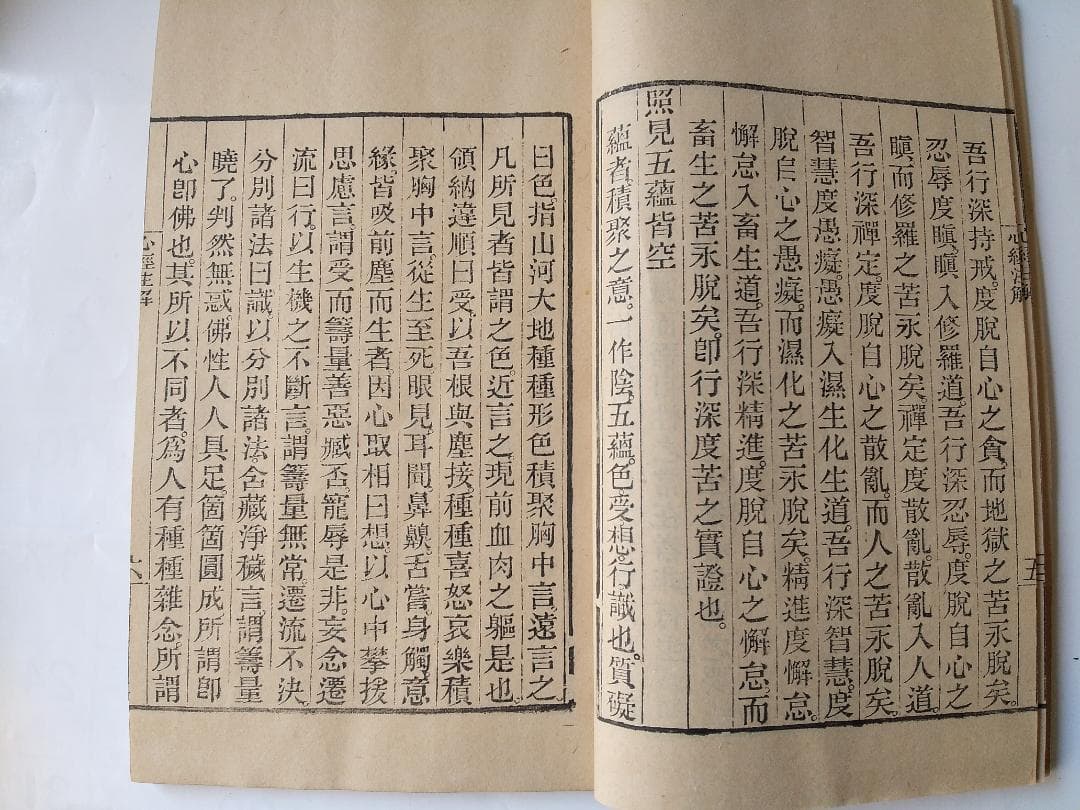 心經註解
五
吾行深持戒。度脫自心之貪。而地獄之苦永脫矣。
忍辱度瞋。瞋入修羅道。吾行深忍辱。度脫自心之
瞋。而修羅之苦永脫矣。禪定度散亂。散亂入人道。
吾行深禪定。度脫自心之散亂。而人之苦永脫矣。
智慧度愚癡。愚癡入濕生化生道。吾行深智慧。度
脫自心之愚癡。而濕化之苦永脫矣。精進度懈怠。
懈怠入畜生道。吾行深精進。度脫自心之懈怠。而
畜生之苦永脫矣。卽行深度苦之實證也。
照見五蘊皆空
蘊者。積聚之意。一作陰。五蘊。色受想。行識也。質礙
曰色。指山河大地種種形色積聚胸中言。遠言之
凡所見者皆謂之色。近言之。現前血肉之軀是也。
領納違順曰受。以吾根與塵接。種種喜怒哀樂積
聚胸中言。從生至死眼見。耳聞。鼻齅。舌嘗。身觸。意
緣。皆吸前塵而生者。因心取相曰想。以心中攀援
思慮言。謂受而籌量善惡臧否寵辱是非。妄念遷
流曰行。以生機之不斷言。謂籌量無常。遷流不決。
分別諸法曰識。以分別諸法。含藏淨穢言。謂籌量
曉了。判然無惑。佛性人人具足。箇箇圓成所謂卽
心卽佛也。其所以不同者。爲人有種種雜念。所謂
心經註解
六